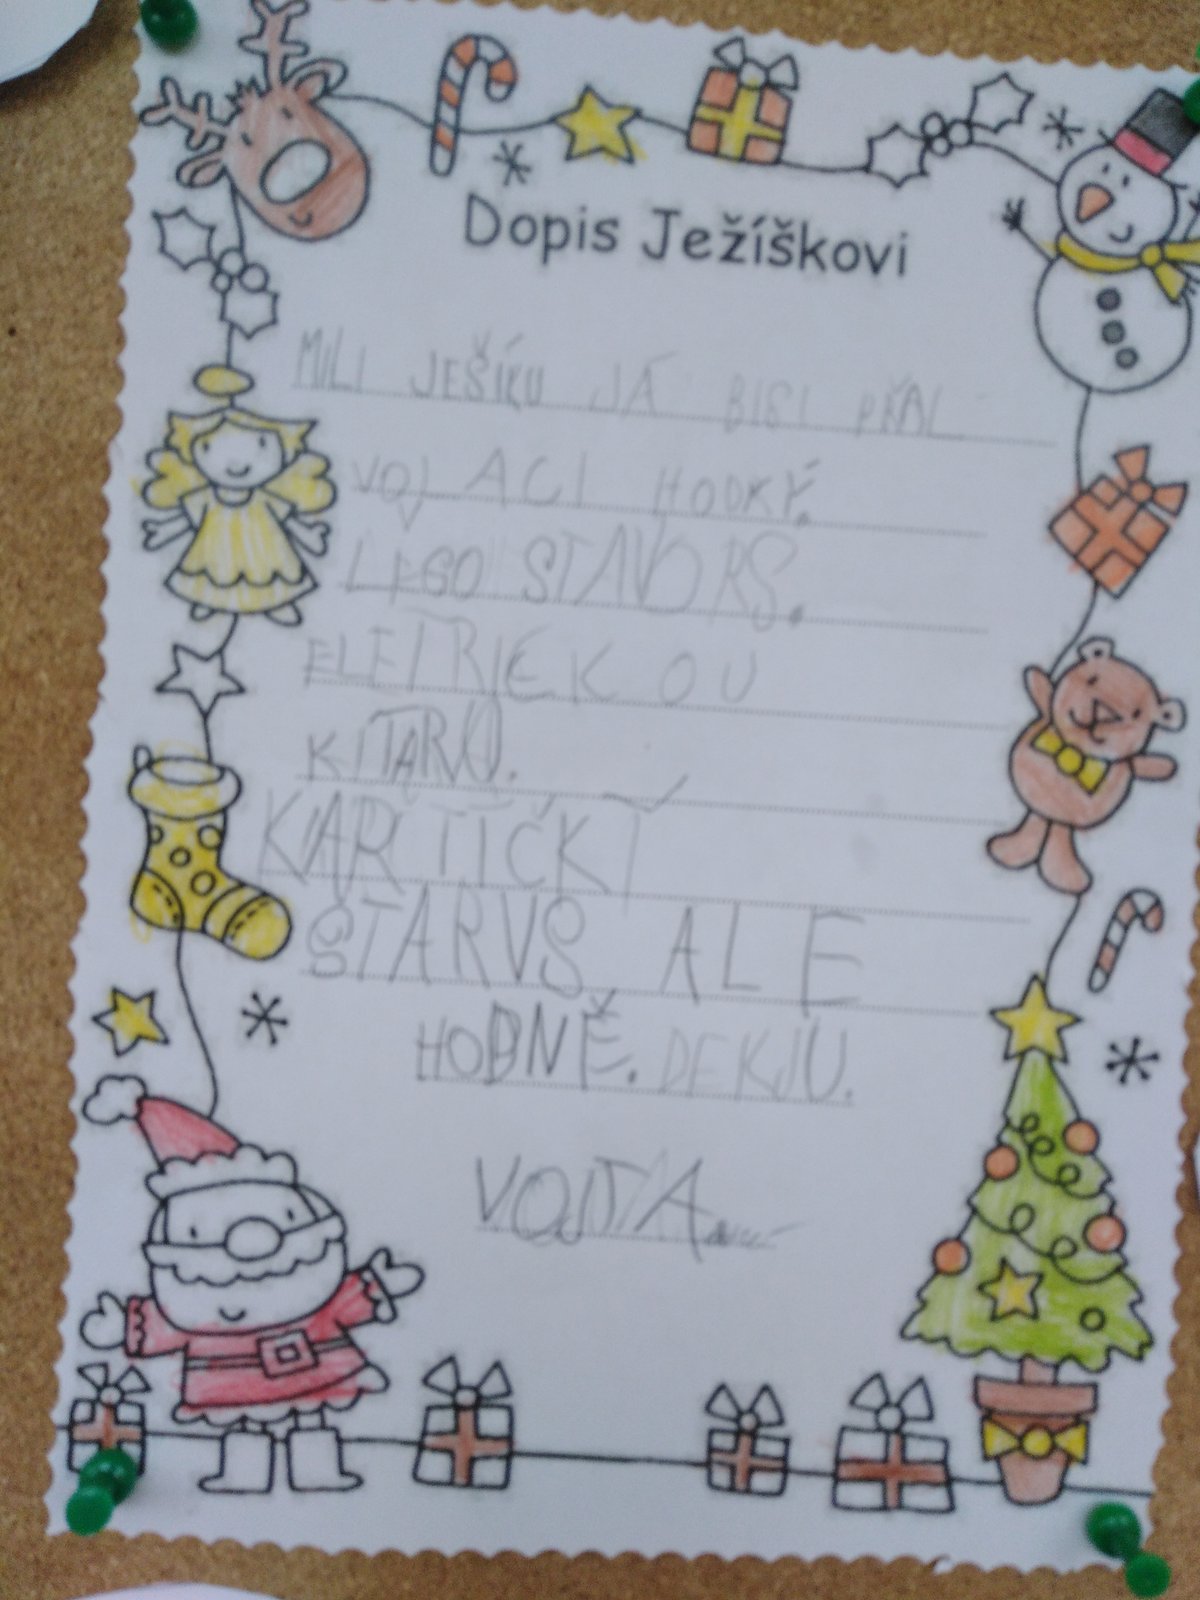 Dopis Ježíškovi
MILI JEŠÍKU JÁ BISI PŘÁL
VOJACI HODKÝ.
LEGO STAVORS.
ELETRIEKOU
KITARU.
KARTIČKÝ
STARVS ALE
HODNĚ. DEKJU.
VOJTA